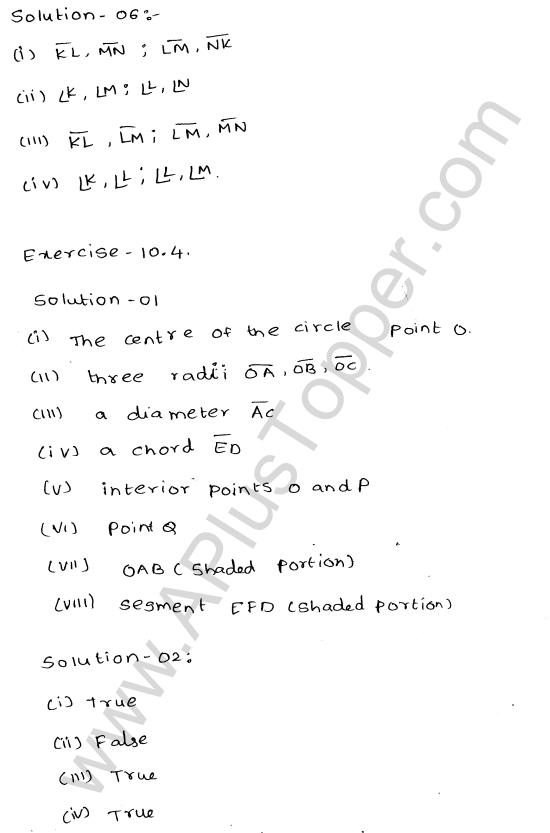 Solution-06:-
(i) K̅L̅, M̅N̅ ; L̅M̅, N̅K̅
(ii) ∠K, ∠M ; ∠L, ∠N
(iii) K̅L̅, L̅M̅ ; L̅M̅, M̅N̅
(iv) ∠K, ∠L ; ∠L, ∠M.
Exercise-10.4.
Solution-01
(i) The centre of the circle point O.
(ii) three radii O̅A̅, O̅B̅, O̅C̅.
(iii) a diameter A̅C̅
(iv) a chord E̅D̅
(v) interior points O and P
(vi) Point Q
(vii) OAB (Shaded Portion)
(viii) segment EFD (Shaded Portion)
Solution-02:
(i) True
(ii) False
(iii) True
(iv) True
www.APlusTopper.com